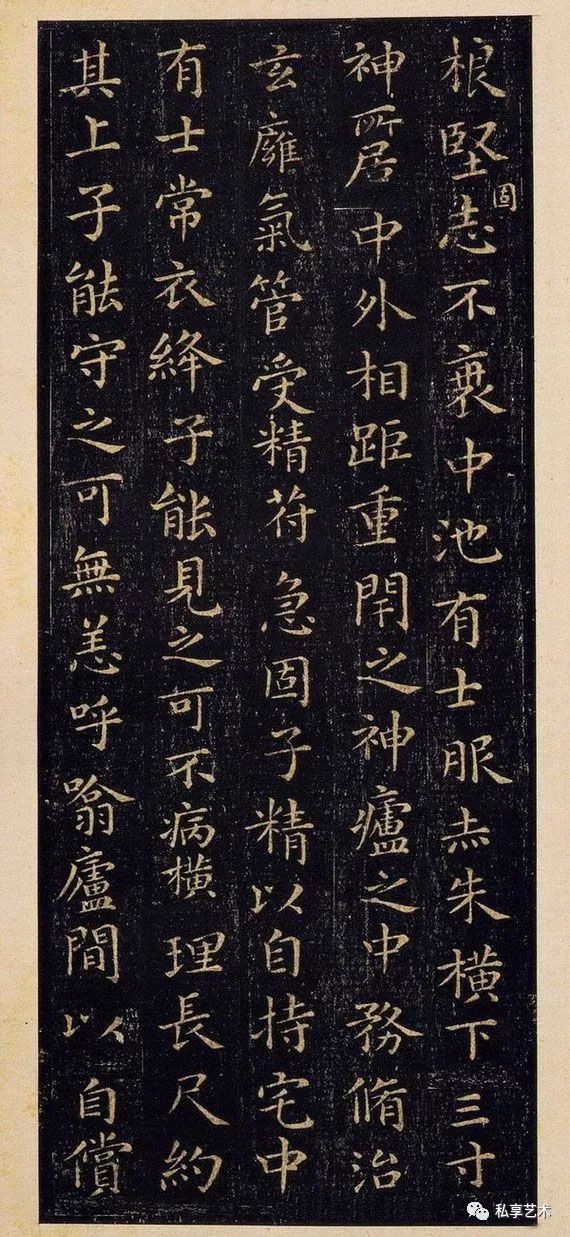 根堅固志不衰中池有士服赤朱橫下三寸
神所居中外相距重閇之神廬之中務脩治
玄廱氣管受精苻急固子精以自持宅中
有士常衣絳子能見之可不病橫理長尺約
其上子能守之可無恙呼噏廬間以自償
私享艺术